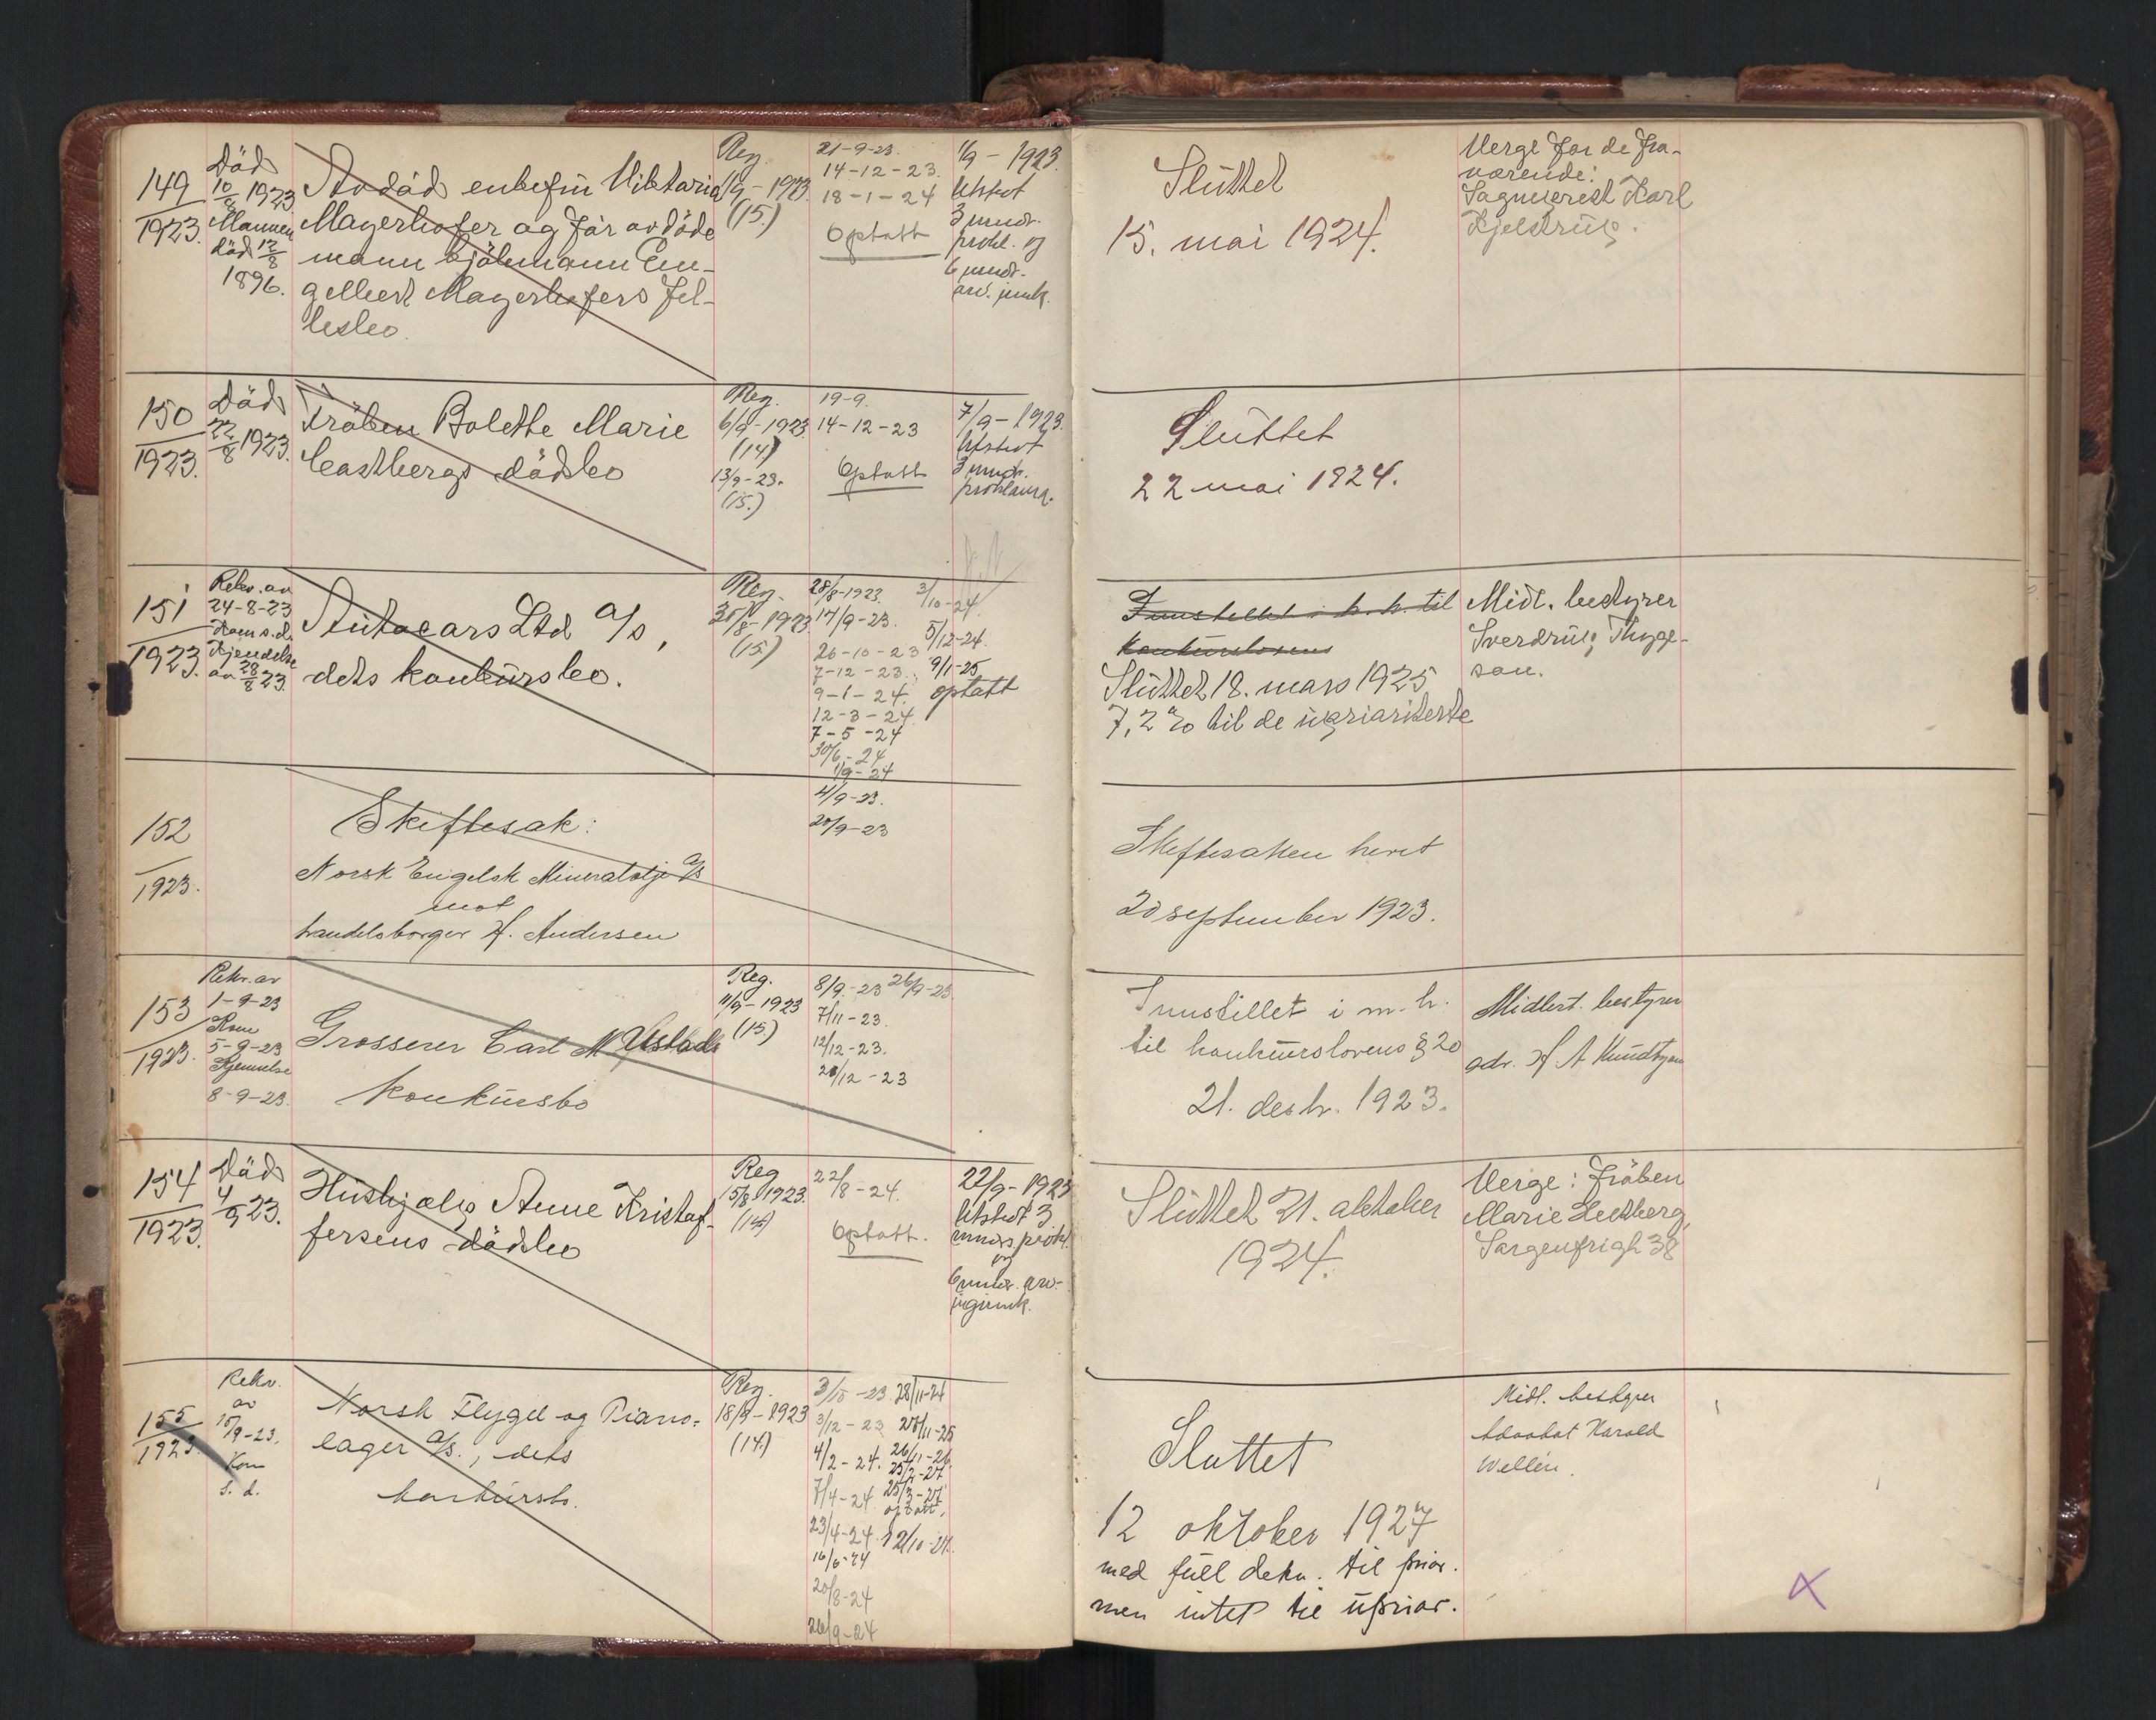 149
1923.
Död
10/8 1923
Mannen
död 12/8
1896.
Avdöd enkefru Viktoria
Mayerhofer og før avdöde
mann Hjälmann En-
gelbert Mayerhofers fel-
lesbo.
Reg.
1/9-1923.
(15.)
21-9-23.
14-12-23.
18-1-24
Optatt
1/9-1923
Utstedt
3 mndr.
prokl. og
6 mndr.
arv.
Sluttet
15. mai 1924.
Verge for de fra-
værende:
Karl
Kjelstrup.
150
1923.
Död
22/8 1923.
Fröken Bolette Marie
Castbergs dödsbo
Reg.
6/9-1923
(14)
13/9-23.
(15.)
19-9.
14-12-23
Optatt
7/9-1923.
Utstedt
3 mndr.
proklama.
Sluttet
22 mai 1924.
151
1923.
Rekv. av
24-8-23
Kom s.d.
Kjendelse
av 28/8 23.
Autocars Ltd a/s,
dets konkursbo.
Reg.
30/8-1923
(15)
28/8-1923.
17/9-23.
26-10-23
7-12-23.
9-1-24.
12-3-24.
7-5-24
30/6-24
1/9-24
3/10-24.
5/12-24.
9/1-25
optatt
Innstillet i h. h. til
konkurslovens
Sluttet 18. mars 1925
7,2 % til de upriariterte
Midl. bestyrer
Sverdrup Thyge-
son.
152
1923.
Skiftesak:
Norsk Engelsk Mineralolje a/s
mot
handelsborger H. Andersen
4/9-23.
20/9-23
Skiftesaken hevet
20 september 1923.
153
1923.
Rekv. av
1-9-23
Kom
5-9-23
Kjennelse
8-9-23.
Grosserer Carl M Ustads
konkursbo
Reg.
11/9-1923
(15.)
8/9-23 26/9-23
7/11-23.
12/12-23.
20/12-23
Innstillet i m. h.
til konkurslovens § 20
21. desbr. 1923.
Midlert. bestyrer
adv. H A Knudtzen
154
1923.
Död
4/9 23.
Hushjælp Anne Kristof-
fersens dödsbo
Reg
15/8 1923.
(14)
22/8-24.
Optatt.
22/9-1923
Utstedt 3
mndrs prokl.
og
6 mndr. arv-
Sluttet 21. aktober
1924.
Verge: Fröken
Marie Hedberg,
Sorgenfrigt 38
155
1923.
Rekv.
av
15/9-23.
Kom
s. d.
Norsk Flygel og Piano-
lager a/s., dets
konkursbo.
Reg.
18/9-1923
(14.)
3/10-23 28/11-24
3/12-23 27/11-25
4/2-24. 26/11-26.
25/2-27
7/4-24 25/3-27
optatt,
23/4-24. 12/10-27.
16/6-24
20/8-24
26/9-24
Sluttet
12 oktober 1927
med full dekn. til prior.
men intet til uprior.
Midl. bestyrer
Advokat Harald
Wellén.
x